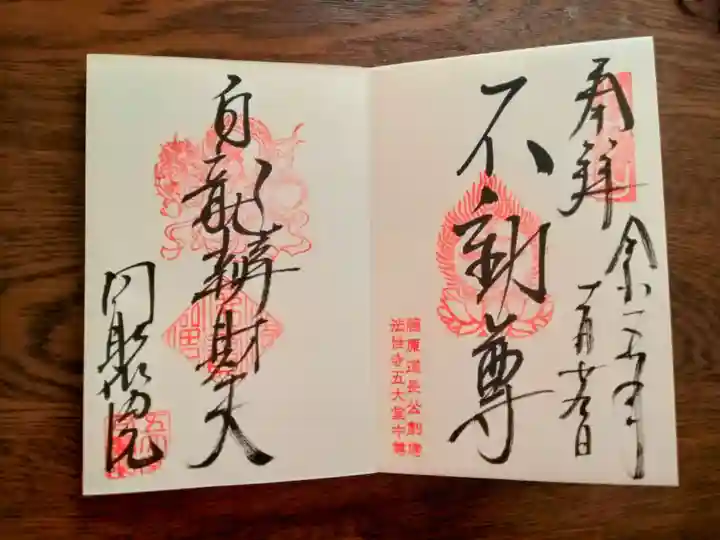 奉拝
年
月
日
不動尊
藤原道長公創建
法性寺五大堂中尊
白龍辨財天
同聚院